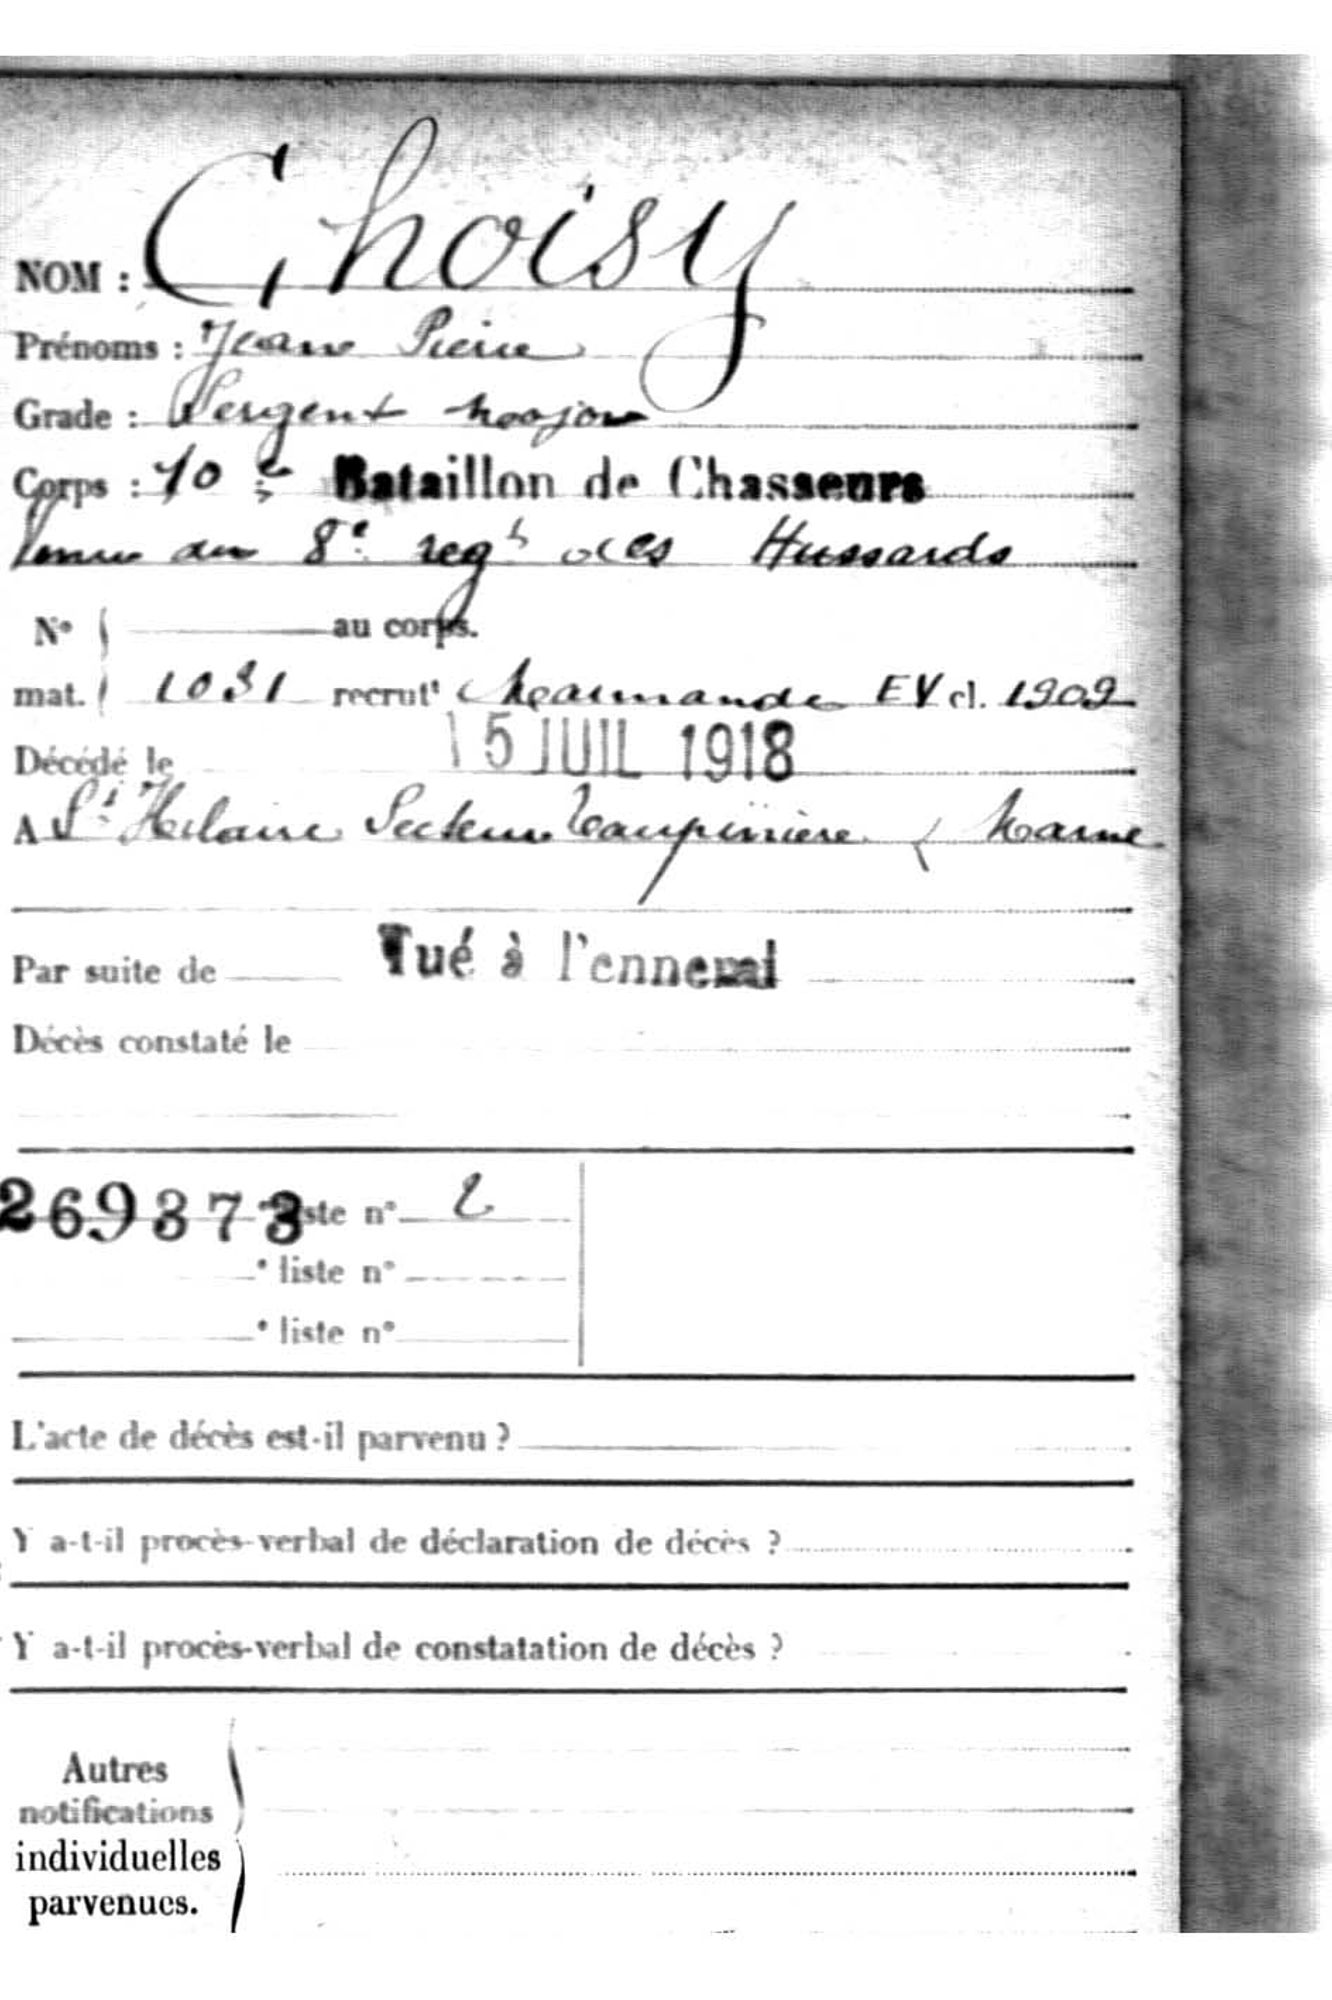 NOM : Choisy
Prénoms : Jean Pierre
Grade : Sergent major
Corps : 70e Bataillon de Chasseurs
venu du 8e regt des Hussards
No au corps.
mat. 1031 recrutt Marmande EV cl. 1909
Décédé le 15 JUIL 1918
A St Hilaire Secteur Taupinière ( Marne
Par suite de Tué à l'ennemi
Décès constaté le
269373 ste n° 2
e liste n°
e liste n°
L'acte de décès est-il parvenu ?
Y a-t-il procès-verbal de déclaration de décès ?
Y a-t-il procès-verbal de constatation de décès ?
Autres
notifications
individuelles
parvenues.